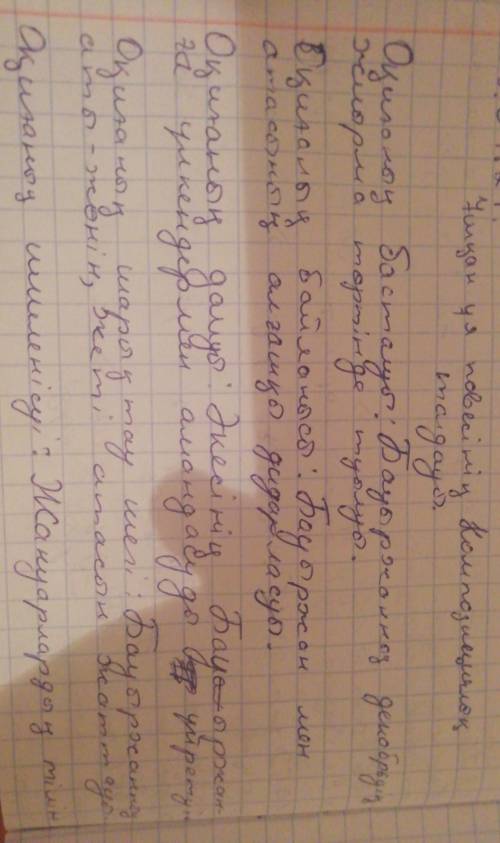 Ұшқан ұя повесінің композициялық
талдауы.
Оқиғаның басталуы: Бауыржанның декабрьдің
жиырма төртінде тууы.
Оқиғаның байланысы: Бауыржан мен
атасының алғашқы дидарласуы.
Оқиғаның дамуы: Әжесінің Бауыржан-
ға үлкендермен амандасуды үйретуі.
Оқиғаның шарықтау шегі: Бауыржанның
аты-жөнін, жеті атасын жаттауы
Оқиғаның шиеленісуі: Жануарлардың тілін